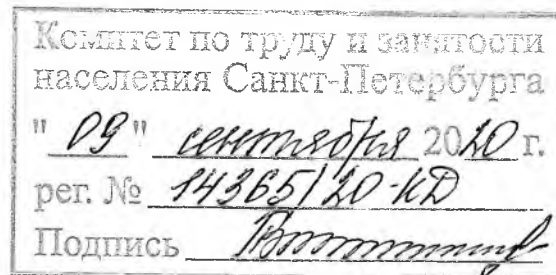 Комитет по труду и занятости
населения Санкт-Петербурга
" 09 " сентября 2020 г.
рег. № 14365/20-КД
Подпись